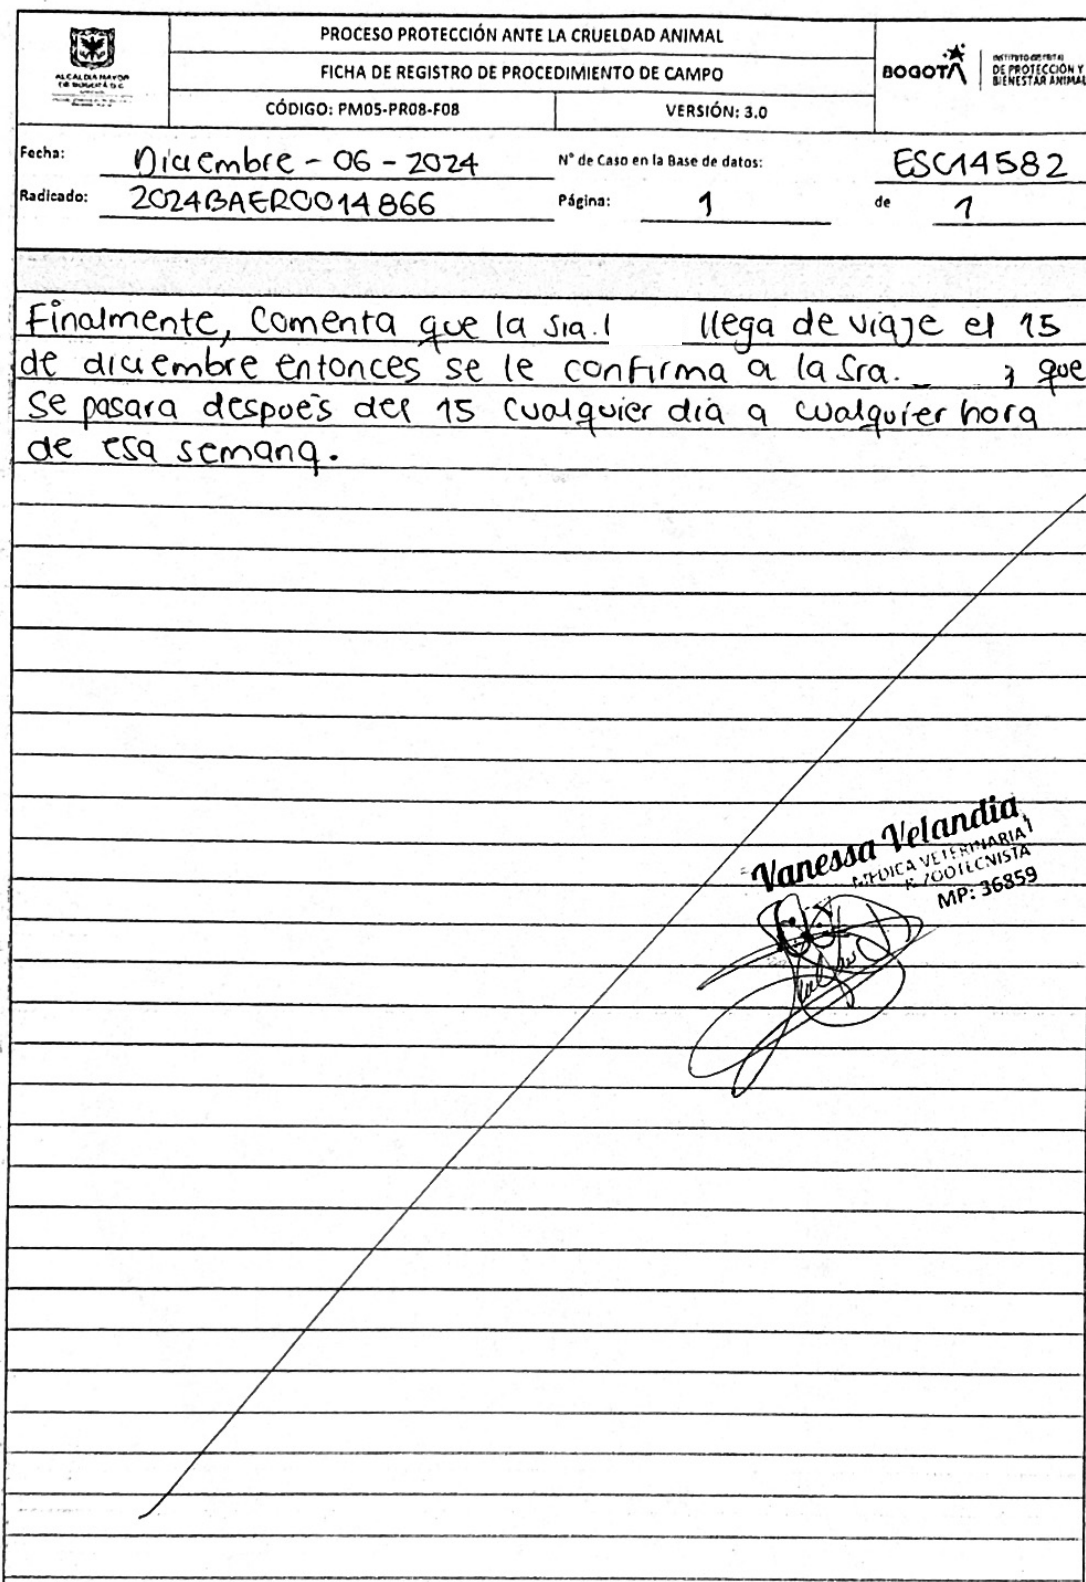 PROCESO PROTECCIÓN ANTE LA CRUELDAD ANIMAL
FICHA DE REGISTRO DE PROCEDIMIENTO DE CAMPO
CÓDIGO: PM05-PR08-F08 VERSIÓN: 3.0
ALCALDIA MAYOR
DE BOGOTÁ D.C
BOGOTÁ
INSTITUTO DISTRITAL
DE PROTECCIÓN Y
BIENESTAR ANIMAL
Fecha: Diciembre - 06 - 2024 N° de Caso en la Base de datos: ESC14582
Radicado: 2024BAER0014866 Página: 1 de 1
Finalmente, Comenta que la Sra. llega de viaje el 15
de diciembre entonces se le confirma a la Sra. que
se pasara despues del 15 cualquier dia a cualquier hora
de esa semana.
Vanessa Velandia
MÉDICA VETERINARIA Y
ZOOTECNISTA
MP: 36859